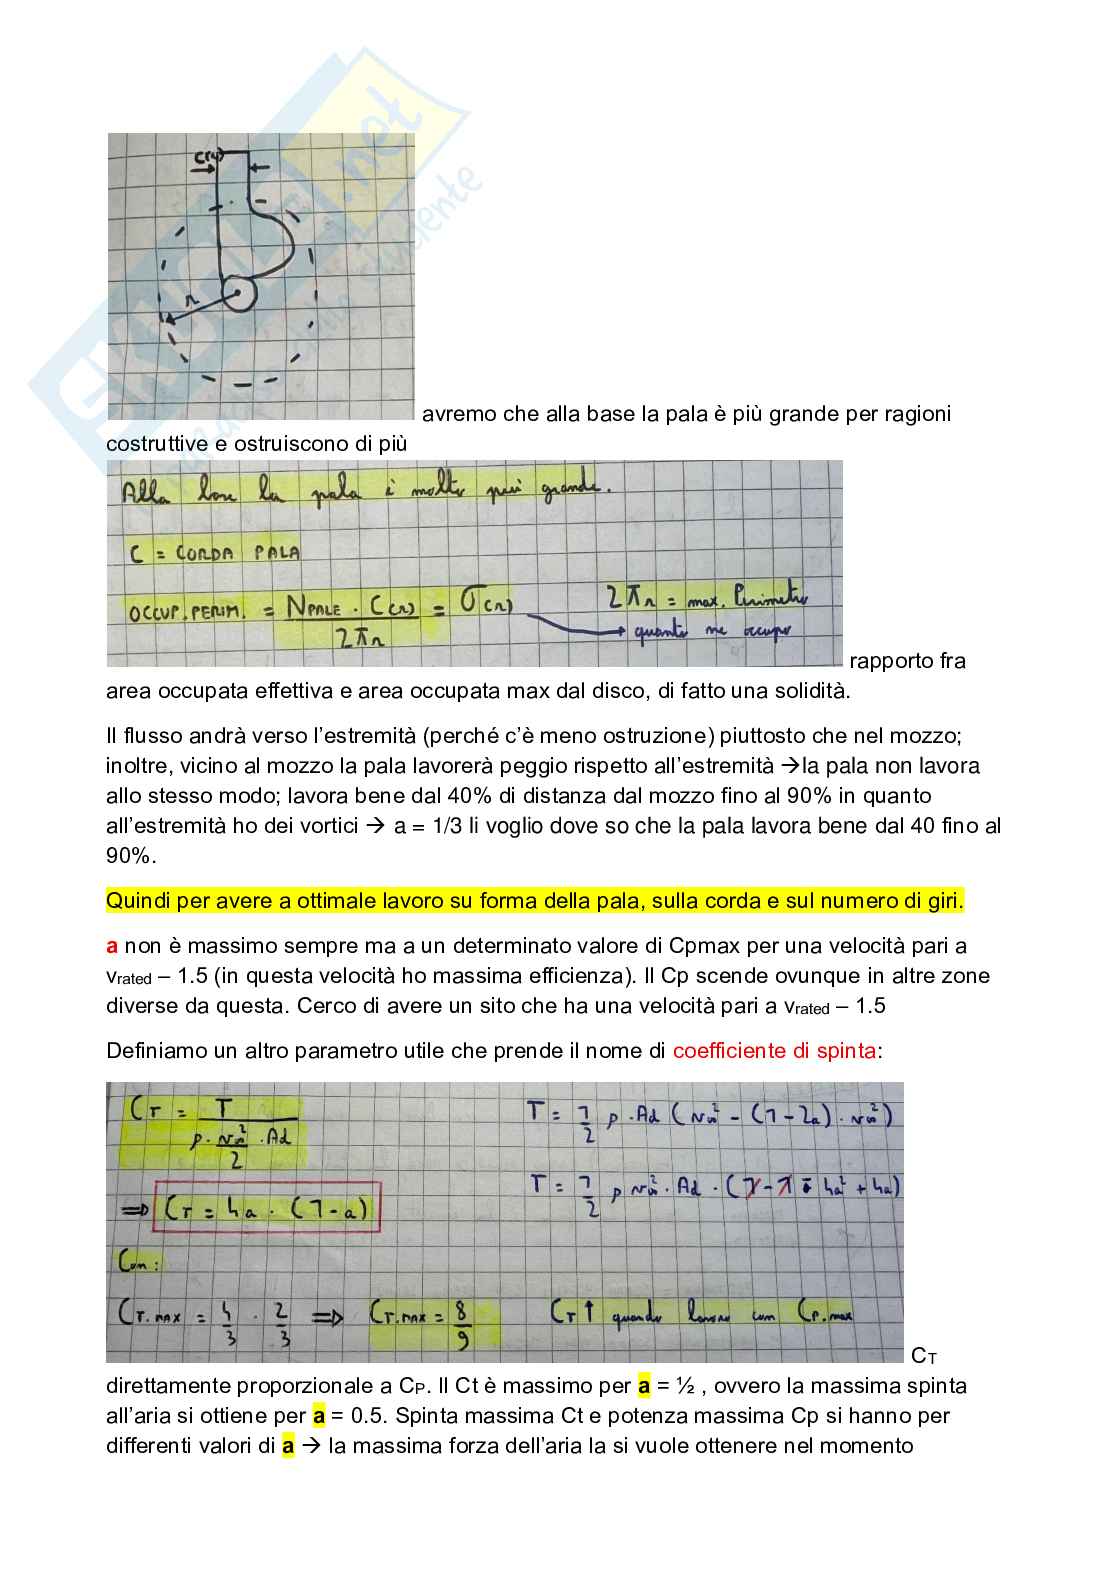 C(r)
r
avremo che alla base la pala è più grande per ragioni
costruttive e ostruiscono di più
Alla base la pala è molto più grande.
C = CORDA PALA
OCCUP. PERIM. = NPALE · C(r) / 2πr = σ(r)
2πr = max. Perimetro
quanto ne occupo
rapporto fra
area occupata effettiva e area occupata max dal disco, di fatto una solidità.
Il flusso andrà verso l’estremità (perché c’è meno ostruzione) piuttosto che nel mozzo;
inoltre, vicino al mozzo la pala lavorerà peggio rispetto all’estremità →la pala non lavora
allo stesso modo; lavora bene dal 40% di distanza dal mozzo fino al 90% in quanto
all’estremità ho dei vortici → a = 1/3 li voglio dove so che la pala lavora bene dal 40 fino al
90%.
Quindi per avere a ottimale lavoro su forma della pala, sulla corda e sul numero di giri.
a non è massimo sempre ma a un determinato valore di Cpmax per una velocità pari a
vrated – 1.5 (in questa velocità ho massima efficienza). Il Cp scende ovunque in altre zone
diverse da questa. Cerco di avere un sito che ha una velocità pari a vrated – 1.5
Definiamo un altro parametro utile che prende il nome di coefficiente di spinta:
CT = T / ρ · v∞² / 2 · Ad
T = 1/2 ρ · Ad (v∞² - (1-2a) · v∞²)
T = 1/2 ρ v∞² · Ad · (1 - 1 - 4a² + 4a)
⇒ CT = 4a · (1-a)
Con:
CT.MAX = 4/3 · 2/3 ⇒ CT.MAX = 8/9
CT ↑ quando lavoro con CP.max
CT
direttamente proporzionale a CP. Il Ct è massimo per a = ½ , ovvero la massima spinta
all’aria si ottiene per a = 0.5. Spinta massima Ct e potenza massima Cp si hanno per
differenti valori di a → la massima forza dell’aria la si vuole ottenere nel momento
SKUOLA.net